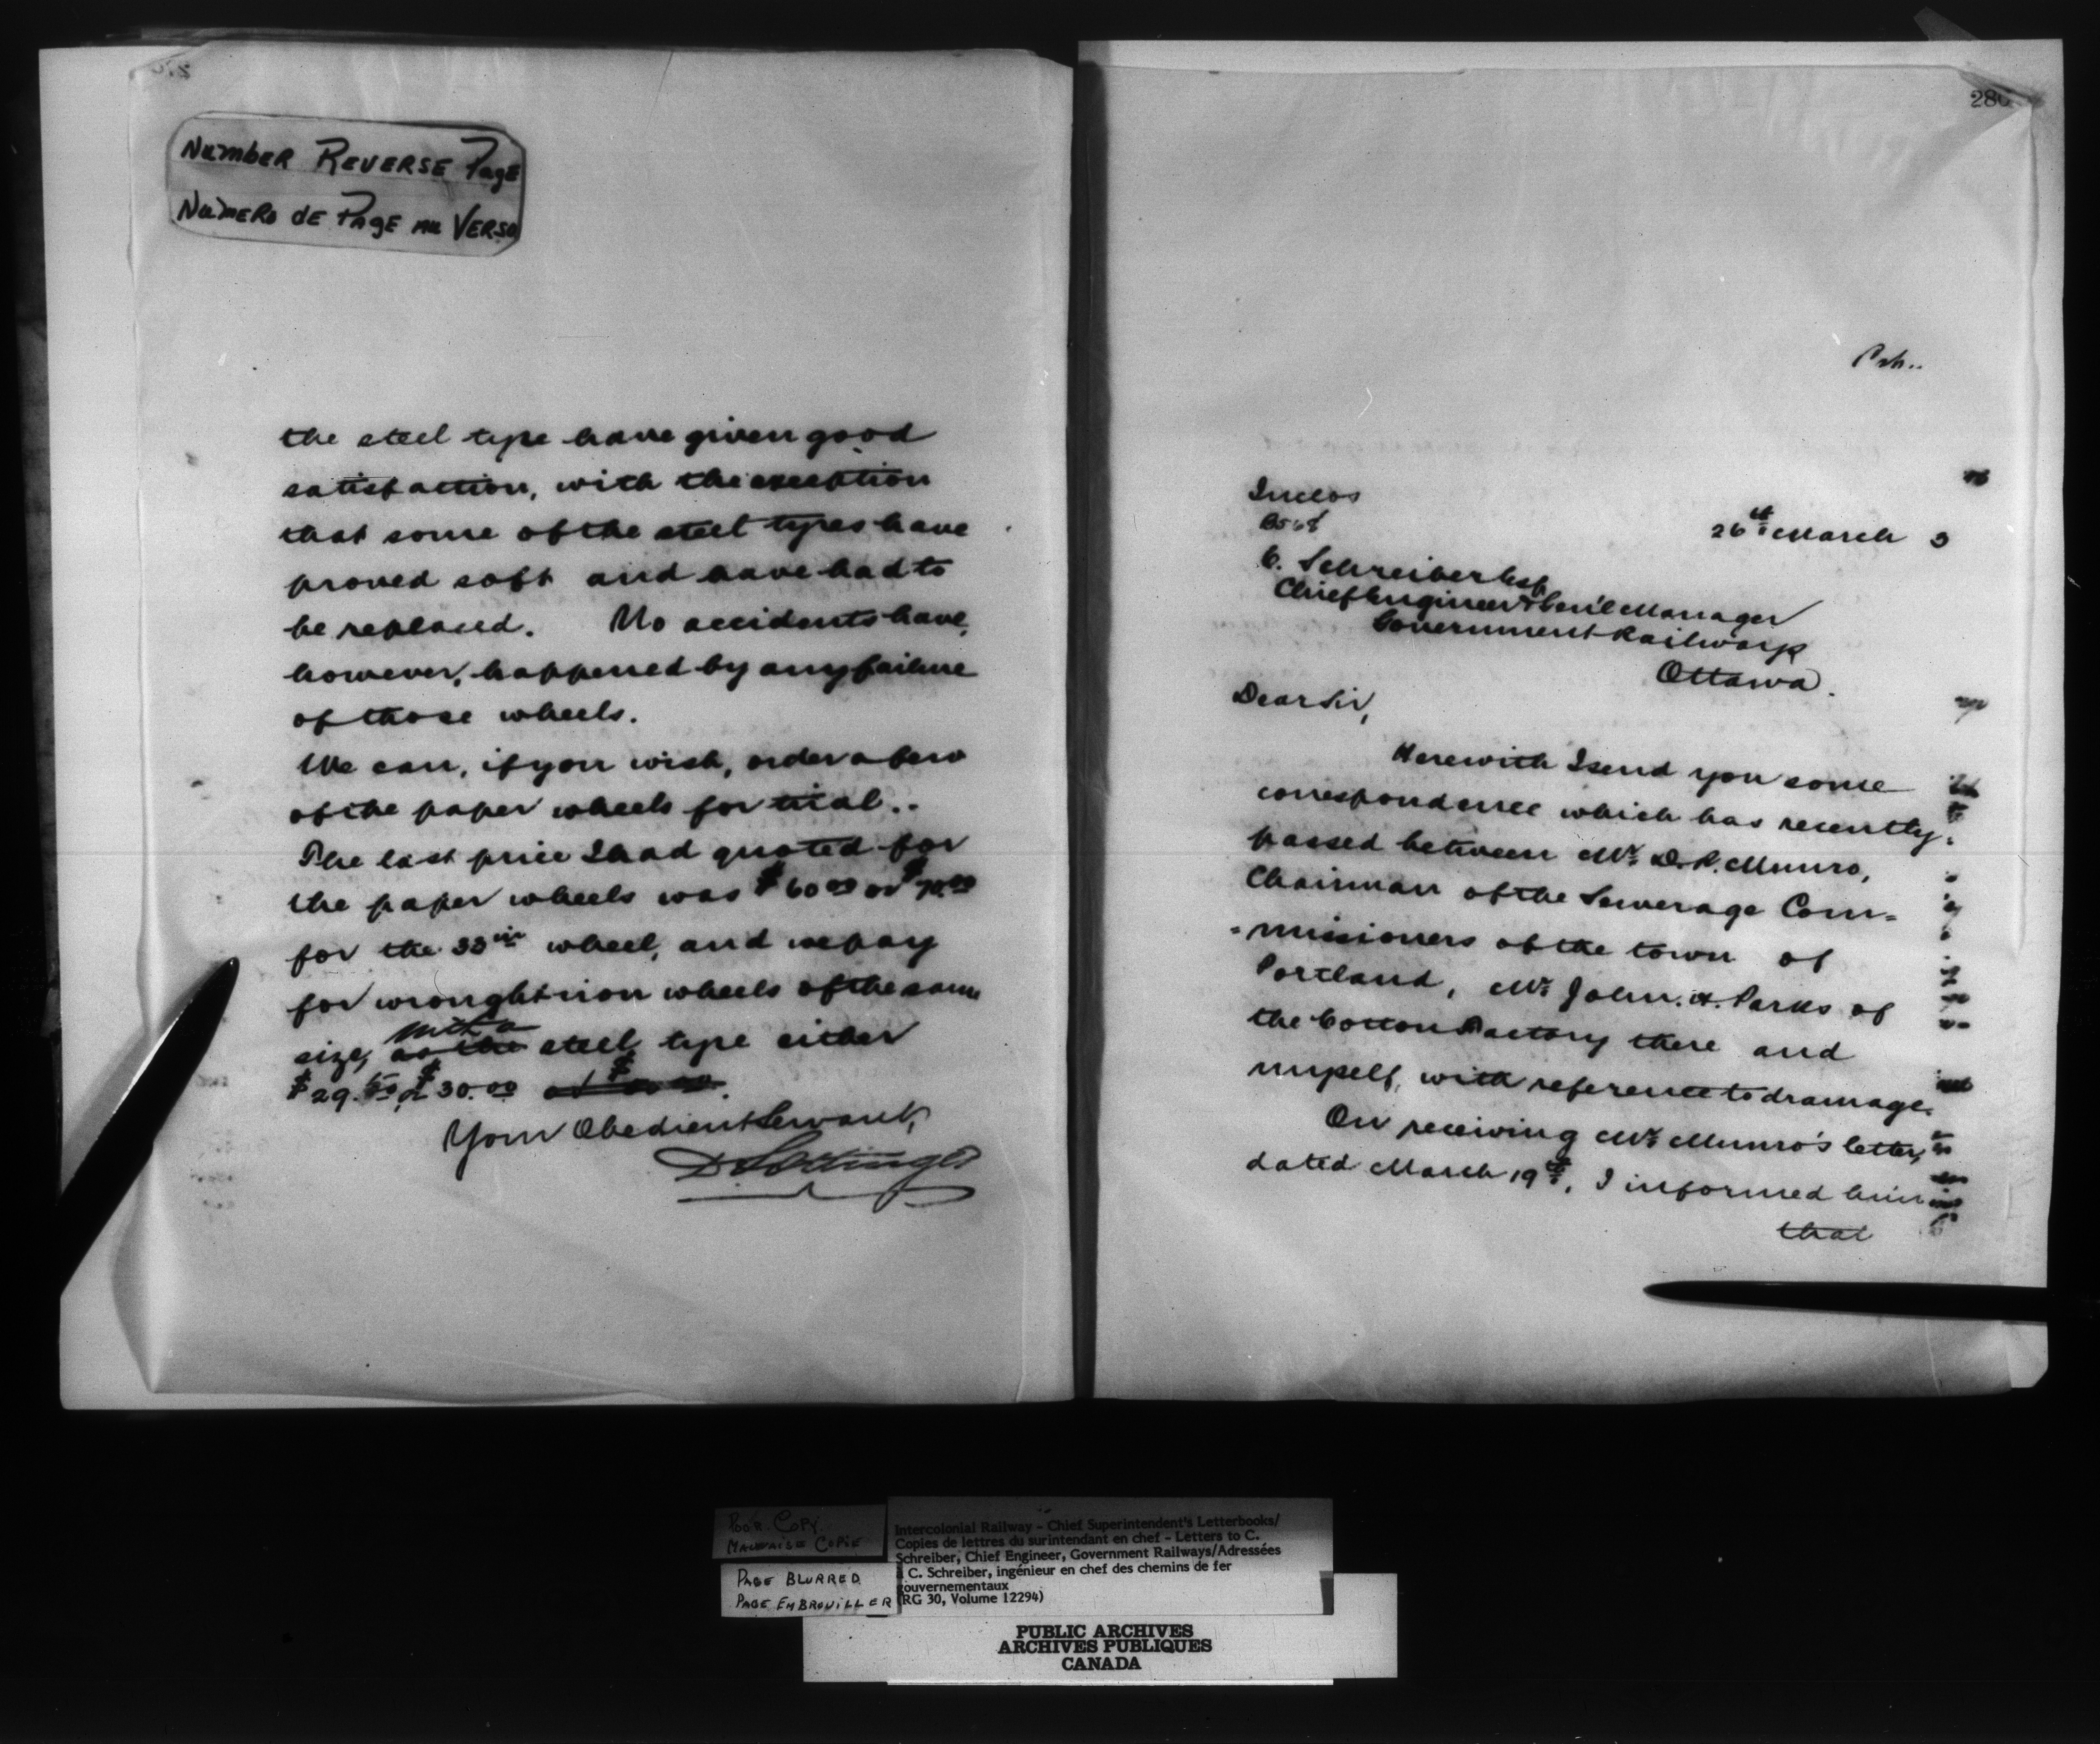 NUMBER REVERSE PAGE
NUMERO DE PAGE AU VERSO
the steel type have given good
satisfaction, with the exception
that some of the steel types have
proved soft and have had to
be replaced. No accidents have,
however, happened by any failure
of those wheels.
We can, if you wish, order a few
of the paper wheels for trial..
The last price I had quoted for
the paper wheels was $60.00 or $70.00
for the 33in wheel, and we pay
for wrought iron wheels of the same
with a
size, as the steel type either
$29.50 or $30.00
Your Obedient Servant,
D Pottinger
280
Inclos
26th March 3
C. Schreiber Esq
Chief Engineer & Gen'l Manager
Government Railways
Ottawa.
Dear Sir,
Herewith I send you some
correspondence which has recently
passed between Mr. D.R. Munro,
Chairman of the Sewerage Com=
=missioners of the town of
Portland, Mr. John. H. Parks of
the Cotton Factory there and
myself, with reference to drainage.
On receiving Mr. Munro's letter,
dated March 19th, I informed him
that
POOR COPY
MAUVAISE COPIE
PAGE BLURRED
PAGE EMBROUILLER
Intercolonial Railway - Chief Superintendent's Letterbooks/
Copies de lettres du surintendant en chef - Letters to C.
Schreiber, Chief Engineer, Government Railways/Adressées
à C. Schreiber, ingénieur en chef des chemins de fer
gouvernementaux
(RG 30, Volume 12294)
PUBLIC ARCHIVES
ARCHIVES PUBLIQUES
CANADA